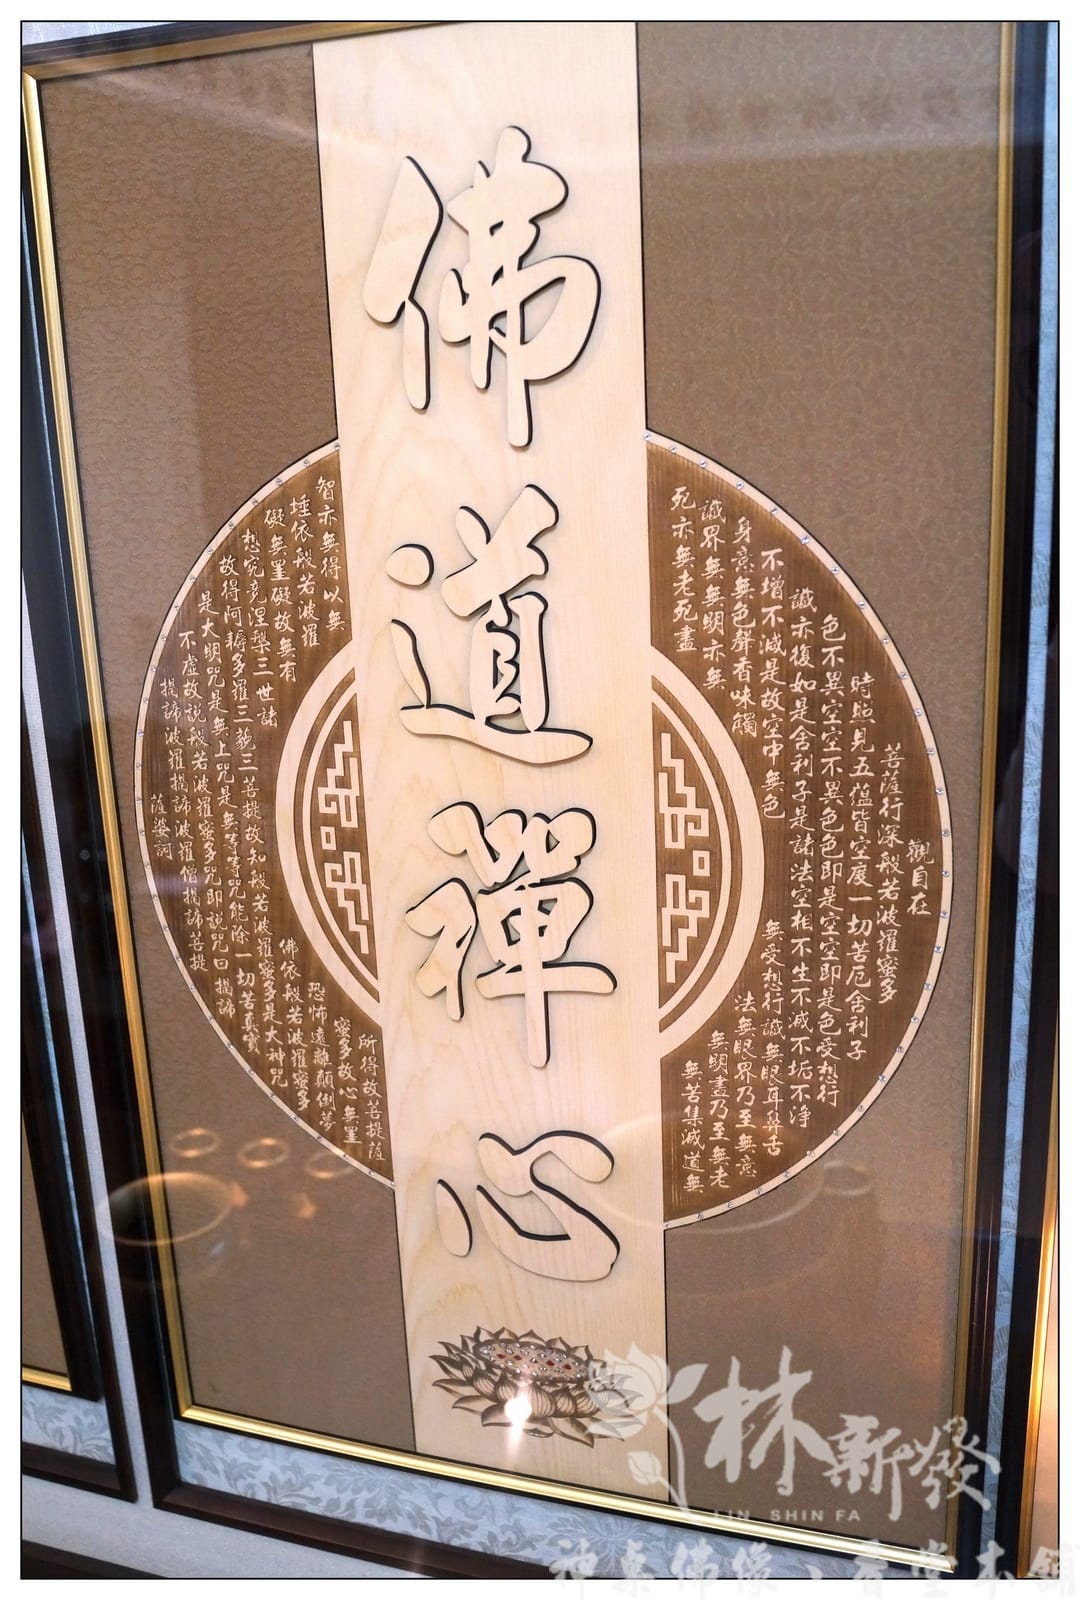 佛道禪心
觀自在
菩薩行深般若波羅蜜多
時照見五蘊皆空度一切苦厄舍利子
色不異空空不異色色即是空空即是色受想行
識亦復如是舍利子是諸法空相不生不滅不垢不淨
不增不減是故空中無色
無受想行識無眼耳鼻舌
身意無色聲香味觸
法無眼界乃至無意
識界無無明亦無
無明盡乃至無老
死亦無老死盡
無苦集滅道無
智亦無得以無
所得故菩提薩
埵依般若波羅
蜜多故心無罣
礙無罣礙故無有
恐怖遠離顛倒夢
想究竟涅槃三世諸
佛依般若波羅蜜多
故得阿耨多羅三藐三菩提故知般若波羅蜜多是大神咒
是大明咒是無上咒是無等等咒能除一切苦真實
不虛故說般若波羅蜜多咒即說咒曰揭諦
揭諦波羅揭諦波羅僧揭諦菩提
薩婆訶
林新發
LIN SHIN FA
神桌佛像、香堂本舖